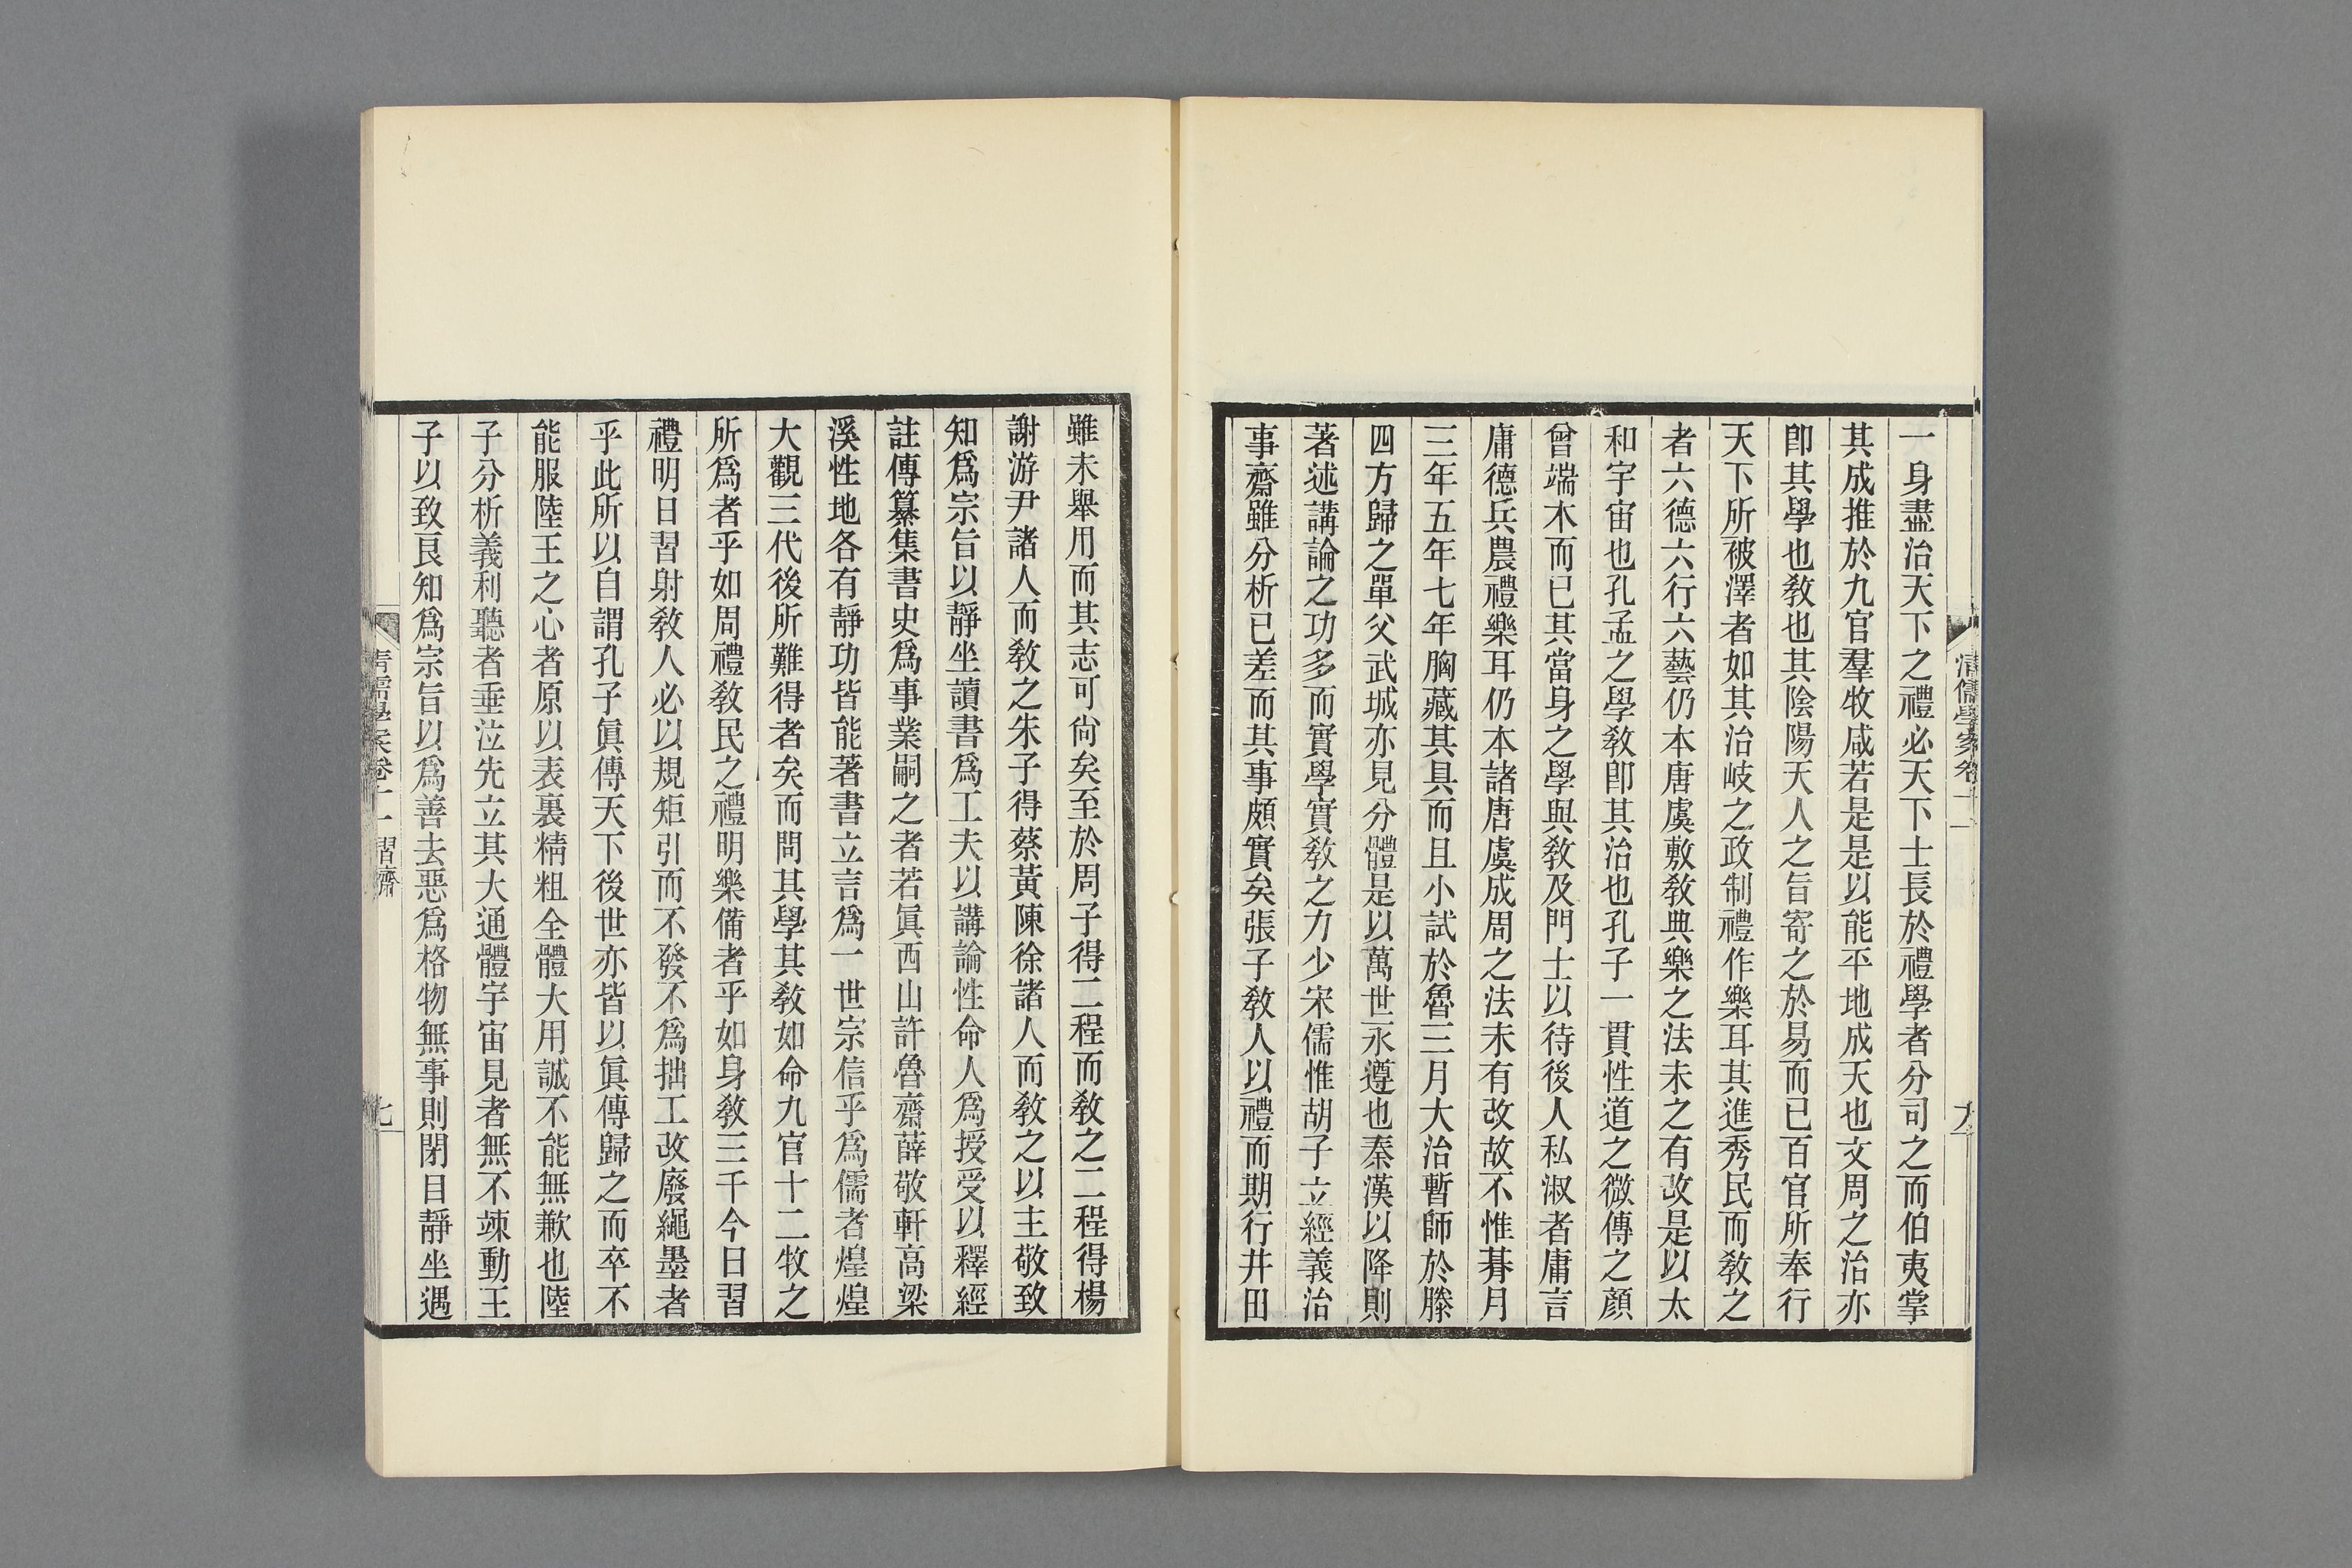 一身盡治天下之禮必天下士長於禮學者分司之而伯夷掌
其成推於九官羣牧咸若是是以能平地成天也文周之治亦
卽其學也敎也其陰陽天人之旨寄之於易而已百官所奉行
天下所被澤者如其治岐之政制禮作樂耳其進秀民而敎之
者六德六行六藝仍本唐虞敷敎典樂之法未之有改是以太
和宇宙也孔孟之學敎卽其治也孔子一貫性道之微傳之顏
曾端木而已其當身之學與敎及門士以待後人私淑者庸言
庸德兵農禮樂耳仍本諸唐虞成周之法未有改故不惟朞月
三年五年七年胸藏其具而且小試於魯三月大治暫師於滕
四方歸之單父武城亦見分體是以萬世永遵也秦漢以降則
著述講論之功多而實學實敎之力少宋儒惟胡子立經義治
事齋雖分析已差而其事頗實矣張子敎人以禮而期行井田
雖未舉用而其志可尙矣至於周子得二程而敎之二程得楊
謝游尹諸人而敎之朱子得蔡黃陳徐諸人而敎之以主敬致
知爲宗旨以靜坐讀書爲工夫以講論性命人爲授受以釋經
註傳纂集書史爲事業嗣之者若眞西山許魯齋薛敬軒高梁
溪性地各有靜功皆能著書立言爲一世宗信乎爲儒者煌煌
大觀三代後所難得者矣而問其學其敎如命九官十二牧之
所爲者乎如周禮敎民之禮明樂備者乎如身敎三千今日習
禮明日習射敎人必以規矩引而不發不爲拙工改廢繩墨者
乎此所以自謂孔子眞傳天下後世亦皆以眞傳歸之而卒不
能服陸王之心者原以表裏精粗全體大用誠不能無歉也陸
子分析義利聽者垂泣先立其大通體宇宙見者無不竦動王
子以致良知爲宗旨以爲善去惡爲格物無事則閉目靜坐遇
清儒學案卷十一 習齋
七